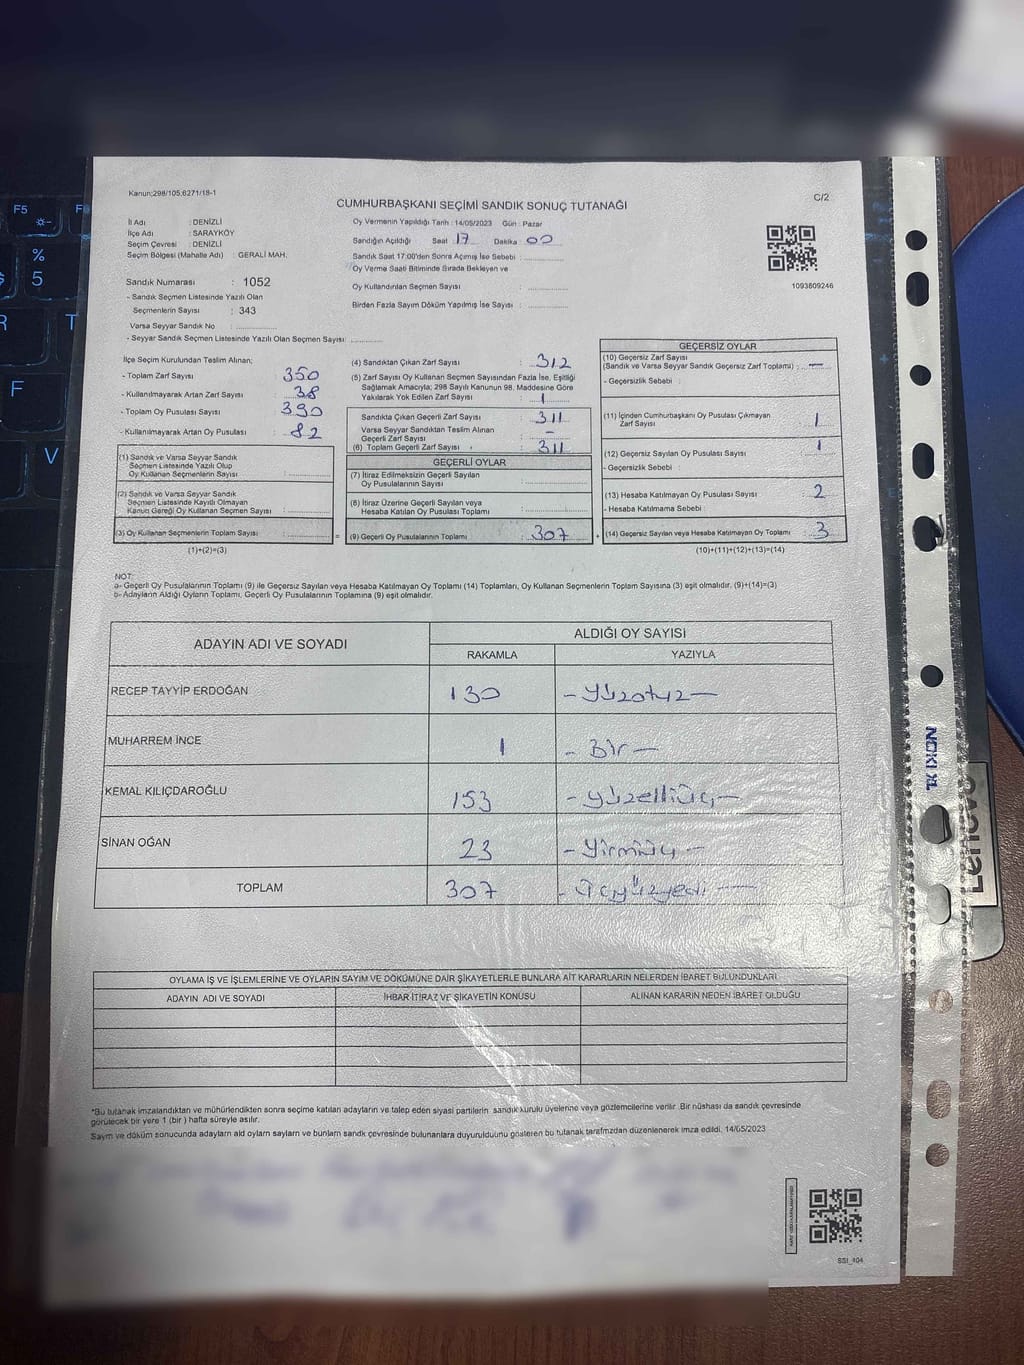 Kanun:298/105,6271/18-1
C/2
CUMHURBAŞKANI SEÇİMİ SANDIK SONUÇ TUTANAĞI
İl Adı : DENİZLİ
İlçe Adı : SARAYKÖY
Seçim Çevresi : DENİZLİ
Seçim Bölgesi (Mahalle Adı) : GERALİ MAH.
Oy Vermenin Yapıldığı Tarih : 14/05/2023 Gün : Pazar
Sandığın Açıldığı Saat 17 Dakika 00
Sandık Saat 17:00'den Sonra Açımış İse Sebebi :
Oy Verme Saati Bitiminde Sırada Bekleyen ve
Oy Kullandırılan Seçmen Sayısı :
Birden Fazla Sayım Döküm Yapılmış İse Sayısı :
1093809246
Sandık Numarası : 1052
- Sandık Seçmen Listesinde Yazılı Olan
Seçmenlerin Sayısı : 343
Varsa Seyyar Sandık No :
- Seyyar Sandık Seçmen Listesinde Yazılı Olan Seçmen Sayısı:
İlçe Seçim Kurulundan Teslim Alınan;
- Toplam Zarf Sayısı : 350
- Kullanılmayarak Artan Zarf Sayısı : 38
- Toplam Oy Pusulası Sayısı : 390
- Kullanılmayarak Artan Oy Pusulası : 82
(1) Sandık ve Varsa Seyyar Sandık
Seçmen Listesinde Yazılı Olup
Oy Kullanan Seçmenlerin Sayısı :
(2) Sandık ve Varsa Seyyar Sandık
Seçmen Listesinde Kayıtlı Olmayan
Kanun Gereği Oy Kullanan Seçmen Sayısı :
(3) Oy Kullanan Seçmenlerin Toplam Sayısı :
(1)+(2)=(3)
=
(4) Sandıktan Çıkan Zarf Sayısı : 312
(5) Zarf Sayısı Oy Kullanan Seçmen Sayısından Fazla İse, Eşitliği
Sağlamak Amacıyla; 298 Sayılı Kanunun 98. Maddesine Göre
Yakılarak Yok Edilen Zarf Sayısı : 1
Sandıkta Çıkan Geçerli Zarf Sayısı : 311
Varsa Seyyar Sandıktan Teslim Alınan
Geçerli Zarf Sayısı : -
(6) Toplam Geçerli Zarf Sayısı : 311
GEÇERLİ OYLAR
(7) İtiraz Edilmeksizin Geçerli Sayılan
Oy Pusulalarının Sayısı :
(8) İtiraz Üzerine Geçerli Sayılan veya
Hesaba Katılan Oy Pusulası Toplamı :
(9) Geçerli Oy Pusulalarının Toplamı : 307
+
GEÇERSİZ OYLAR
(10) Geçersiz Zarf Sayısı
(Sandık ve Varsa Seyyar Sandık Geçersiz Zarf Toplamı) : —
- Geçersizlik Sebebi :
(11) İçinden Cumhurbaşkanı Oy Pusulası Çıkmayan
Zarf Sayısı : 1
(12) Geçersiz Sayılan Oy Pusulası Sayısı : 1
- Geçersizlik Sebebi :
(13) Hesaba Katılmayan Oy Pusulası Sayısı : 2
- Hesaba Katılmama Sebebi :
(14) Geçersiz Sayılan veya Hesaba Katılmayan Oy Toplamı : 3
(10)+(11)+(12)+(13)=(14)
NOT:
a- Geçerli Oy Pusulalarının Toplamı (9) ile Geçersiz Sayılan veya Hesaba Katılmayan Oy Toplamı (14) Toplamları, Oy Kullanan Seçmenlerin Toplam Sayısına (3) eşit olmalıdır. (9)+(14)=(3)
b- Adayların Aldığı Oyların Toplamı, Geçerli Oy Pusulalarının Toplamına (9) eşit olmalıdır.
ADAYIN ADI VE SOYADI
ALDIĞI OY SAYISI
RAKAMLA YAZIYLA
RECEP TAYYİP ERDOĞAN 130 - Yüzotuz -
MUHARREM İNCE 1 - Bir -
KEMAL KILIÇDAROĞLU 153 - Yüzelliüç -
SİNAN OĞAN 23 - Yirmiüç -
TOPLAM 307 - Üçyüzyedi -
OYLAMA İŞ VE İŞLEMLERİNE VE OYLARIN SAYIM VE DÖKÜMÜNE DAİR ŞİKAYETLERLE BUNLARA AİT KARARLARIN NELERDEN İBARET BULUNDUKLARI
ADAYIN ADI VE SOYADI İHBAR İTİRAZ VE ŞİKAYETİN KONUSU ALINAN KARARIN NEDEN İBARET OLDUĞU
*Bu tutanak imzalandıktan ve mühürlendikten sonra seçime katılan adayların ve talep eden siyasi partilerin sandık kurulu üyelerine veya gözlemcilerine verilir. Bir nüshası da sandık çevresinde
görülecek bir yere 1 (bir ) hafta süreyle asılır.
Sayım ve döküm sonucunda adayların ald oyların sayıların ve bunların sandık çevresinde bulunanlara duyurulduunu gösteren bu tutanak tarafmzdan düzenlenerek imza edildi, 14/05/2023
SSI_104
NOKI XL
Lenovo
F5
%
5
R
T
F
V